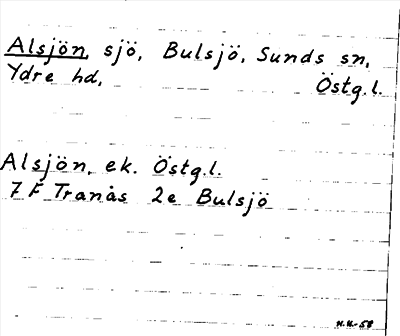 Alsjön, sjö, Bulsjö, Sunds sn,
Ydre hd, Östg.l.
Alsjön, ek. Östg.l.
7 F Tranås 2e Bulsjö